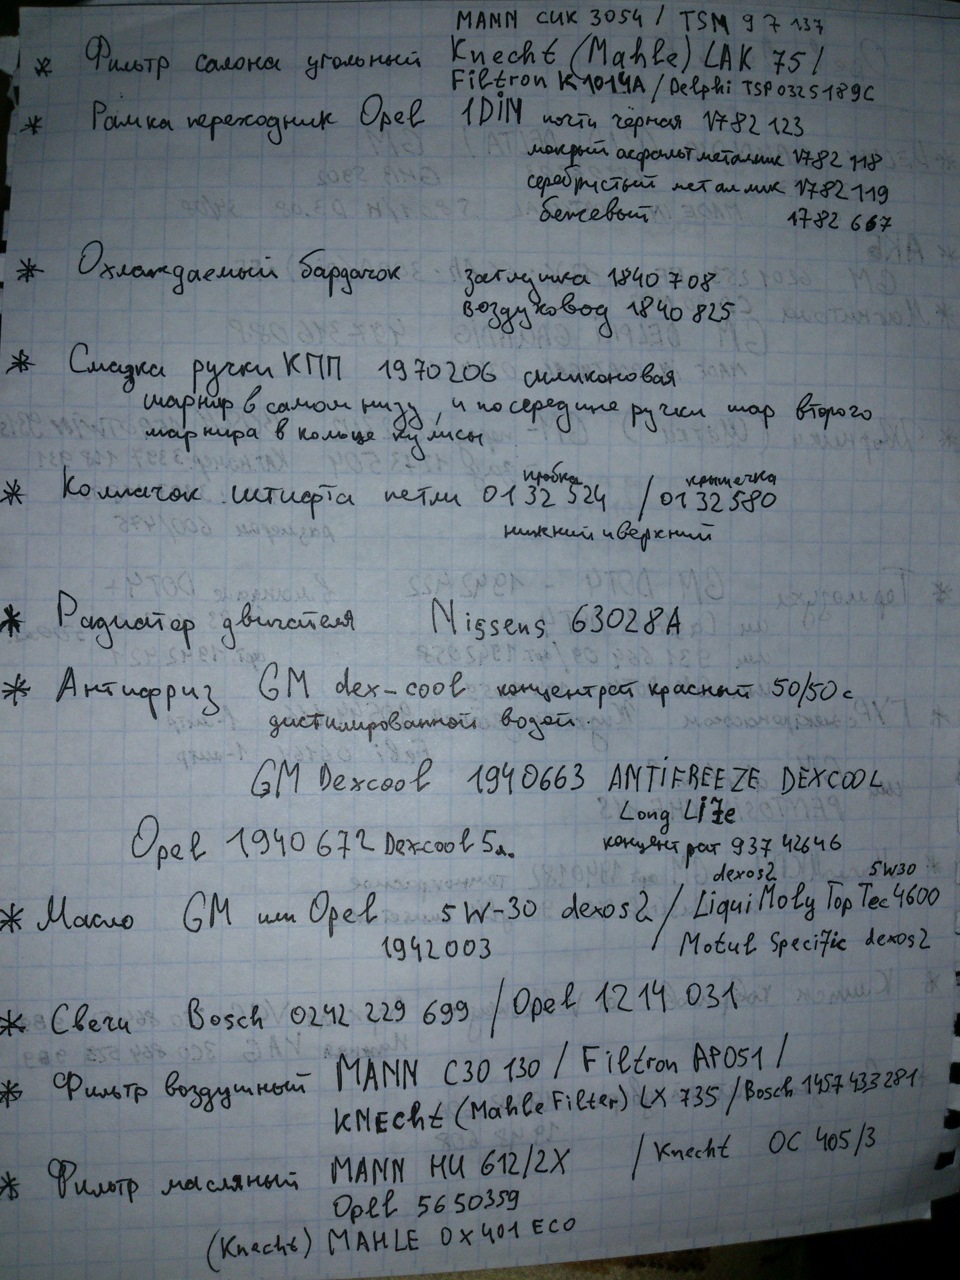 MANN CUK 3054 / TSM 9 7 137
* Фильтр салона угольный Knecht (Mahle) LAK 75 /
Filtron K1014A / Delphi TSP0325189C
* Рамка переходник Opel 1DIN почти чёрная 1782 123
мокрый асфальт металлик 1782 118
серебристый металлик 1782119
бежевый 1782 667
* Охлаждаемый бардачок заглушка 1840 708
воздуховод 1840 825
* Смазка ручки КПП 1970206 силиконовая
шарнир в самом низу, и посередине ручки шар второго
шарнира в кольце кулисы
пробка крышечка
* Колпачок штифта петли 0132 524 / 0132580
нижний и верхний
* Радиатор двигателя Nissens 63028A
* Антифриз GM dex-cool концентрат красный 50/50 с
дистилированной водой.
GM Dexcool 1940663 ANTIFREEZE DEXCOOL
Long Life
Opel 1940 672 Dexcool 5л. концентрат 937 42646
dexos2 5W30
* Масло GM или Opel 5W-30 dexos2 / LiquiMoly Top Tec 4600
1942003 / Motul Specific dexos2
* Свечи Bosch 0242 229 699 / Opel 1214 031
* Фильтр воздушный MANN C30 130 / Filtron AP051 /
KNECht (Mahle Filter) LX 735 / Bosch 1457 433 281
* Фильтр масляный MANN HU 612/2X / Knecht OC 405/3
Opel 5650359
(Knecht) MAHLE OX401 ECO